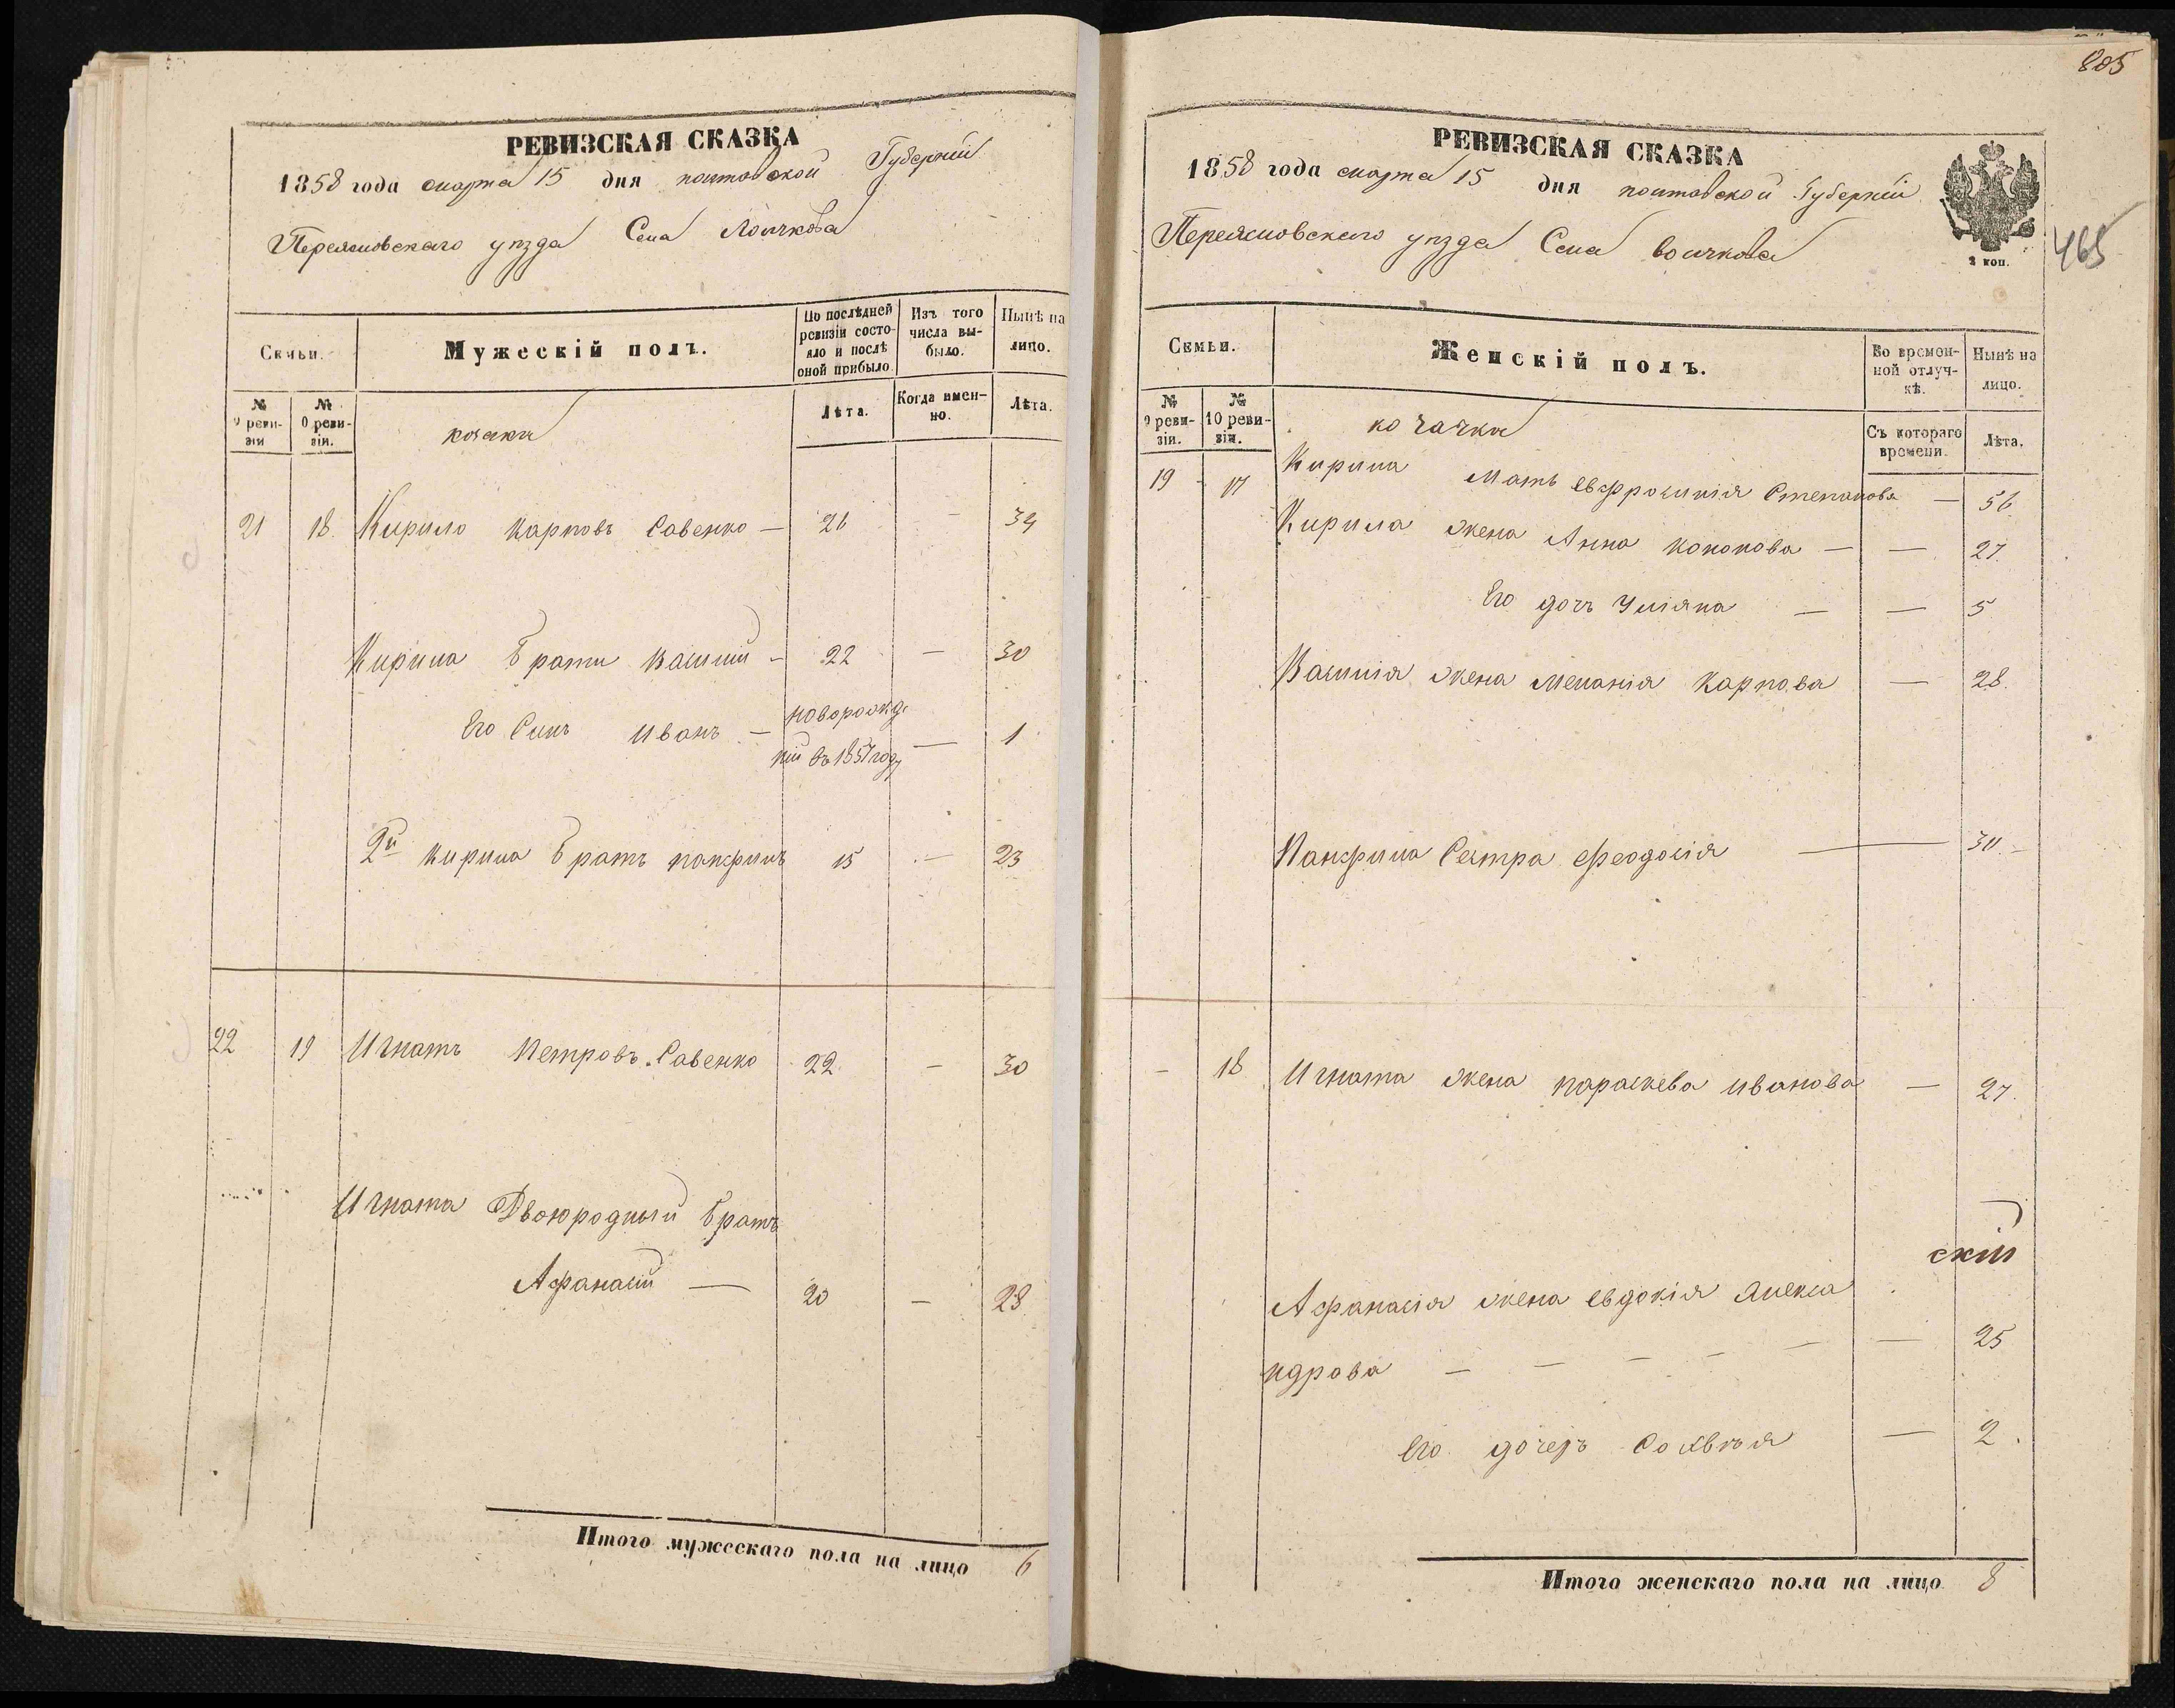 РЕВИЗСКАЯ СКАЗКА
1858 года марта 15 дня полтавской Губерніи
Переяславскаго уѣзда Села
Семьи.
Мужескій полъ.
По послѣдней ревизіи состояло и послѣ оной прибыло.
Изъ того числа выбыло.
Нынѣ на лицо.
№ 9 ревизіи
№ 10 ревизіи.
козаки
Лѣта.
Когда именно.
Лѣта.
21 18 Кирило Карповъ Савенко — 26 — 34
Кирила братъ Василій — 22 — 30
Его Синъ Иванъ — новорожде
ній въ 1857 году — 1
2й Кирила братъ панфилъ 15 — 23
22 19 Игнатъ Петровъ Савенко 22 — 30
Игната Двоюродный братъ
Афанасій — 20 — 28
Итого мужескаго пола на лицо 6
805
465
РЕВИЗСКАЯ СКАЗКА
1858 года марта 15 дня полтавской Губерніи
Переяславскаго уѣзда Села
3 коп.
Семьи.
Женскій полъ.
Во временной отлучкѣ.
Нынѣ на лицо.
№ 9 ревизіи.
№ 10 ревизіи.
козачки
Съ котораго времени.
Лѣта.
19 17 Кирила Мать Евфросинія Степанова — 56
Кирила жена Анна Кононова — — 27
Его дочъ Уліяна — — 5
Василія жена Меланія Карпова — 28
Панфила Сестра Феодосія — 30
— 18 Игната жена параскева Иванова — 27
скій
Афанасія жена Евдокія Алекса
ндрова — — — — — — 25
Его дочеръ — 2
Итого женскаго пола на лицо 8